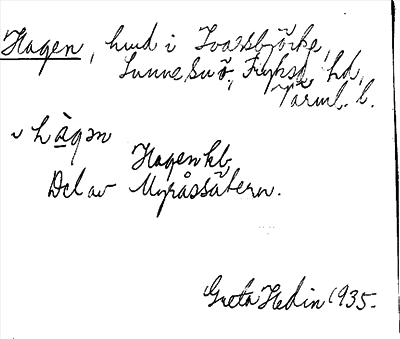 Hagen, hmd i Ivarsbjörke,
Sunne sn ö, Fryksd. hd,
Värml. l.
v hàgen
Hagen hb
Del av Myråssätern.
Greta Hedin 1935.